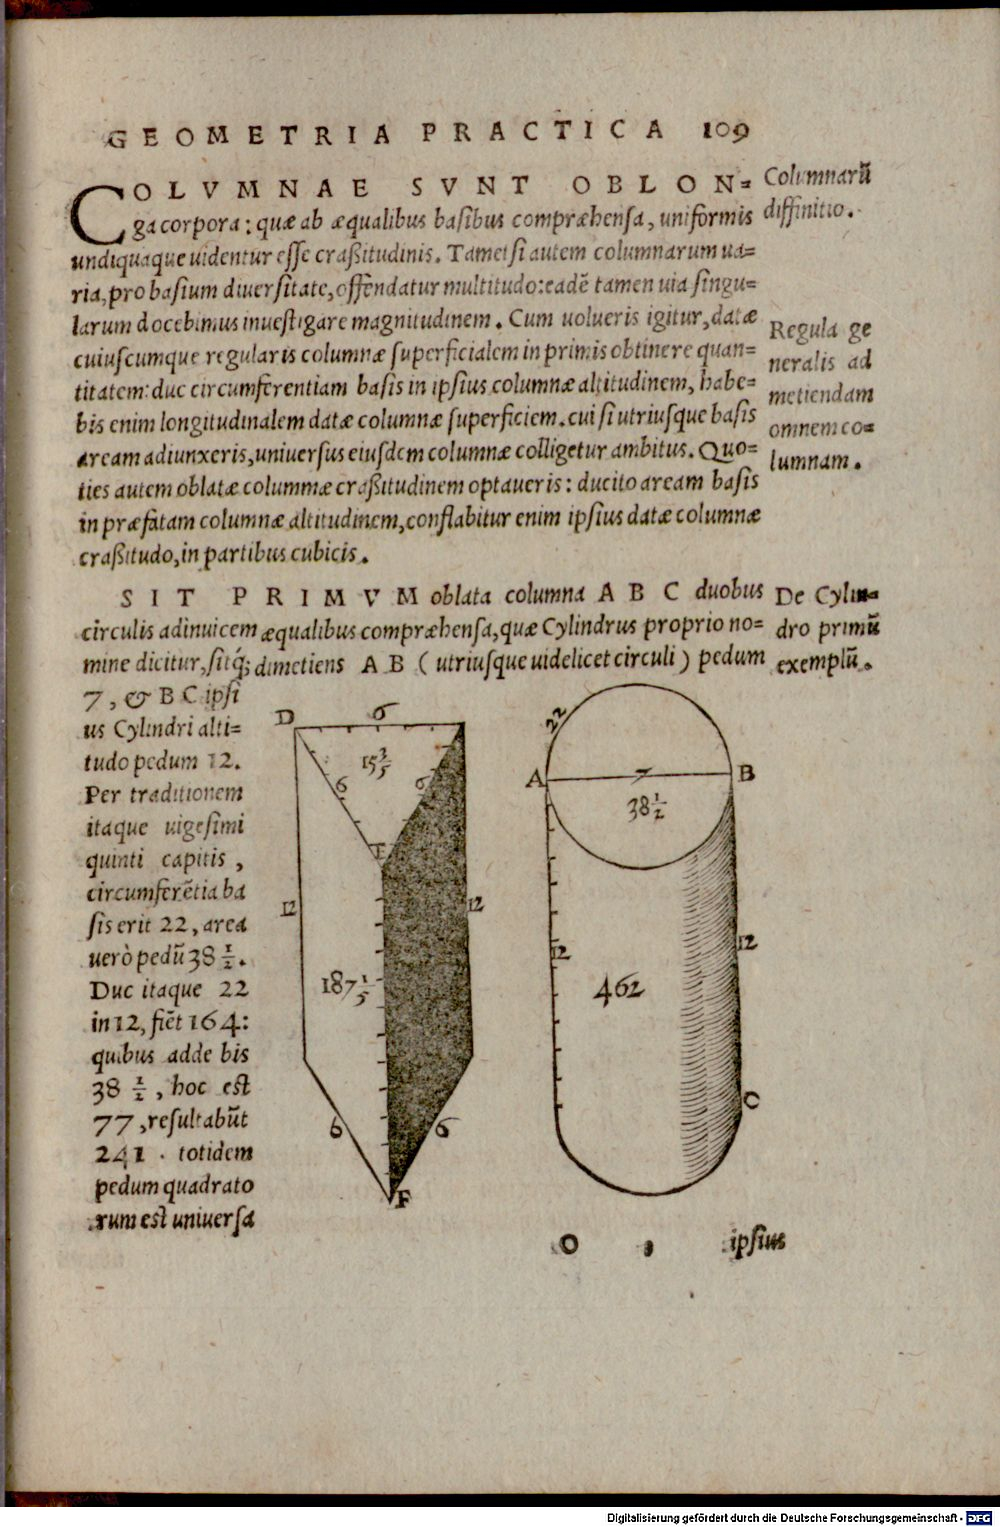 GEOMETRIA PRACTICA 109
COLVMNAE SVNT OBLON-
ga corpora: quæ ab æqualibus basibus compræhensa, uniformis
undiquaque uidentur esse craßitudinis. Tametsi autem columnarum ua-
ria, pro basium diuersitate, offendatur multitudo: eadē tamen uia singu-
larum docebimus inuestigare magnitudinem. Cum uolueris igitur, datæ
cuiuscumque regularis columnæ superficialem in primis obtinere quan-
titatem: duc circumferentiam basis in ipsius columnæ altitudinem, habe-
bis enim longitudinalem datæ columnæ superficiem. cui si utriusque basis
aream adiunxeris, uniuersus eiusdem columnæ colligetur ambitus. Quo-
ties autem oblatæ columnæ craßitudinem optaueris: ducito aream basis
in præfatam columnæ altitudinem, conflabitur enim ipsius datæ columnæ
craßitudo, in partibus cubicis.
Columnarū
diffinitio.
Regula ge
neralis ad
metiendam
omnem co-
lumnam.
SIT PRIMVM oblata columna A B C duobus
circulis adinuicem æqualibus compræhensa, quæ Cylindrus proprio no-
mine dicitur, sitq́; dimetiens A B ( utriusque uidelicet circuli ) pedum
De Cylin-
dro primū
exemplū.
7, & B C ipsi
us Cylindri alti-
tudo pedum 12.
Per traditionem
itaque uigesimi
quinti capitis,
circumferētia ba
sis erit 22, area
uerò pedū 38 1/2.
Duc itaque 22
in 12, fiēt 164:
quibus adde bis
38 1/2, hoc est
77, resultabūt
241. totidem
pedum quadrato
rum est uniuersa
D 6
15 3/5
6 6
E
12 12
187 1/5
6 6
F
22
A 7 B
38 1/2
12 12
462
C
O ; ipsius
Digitalisierung gefördert durch die Deutsche Forschungsgemeinschaft - DFG